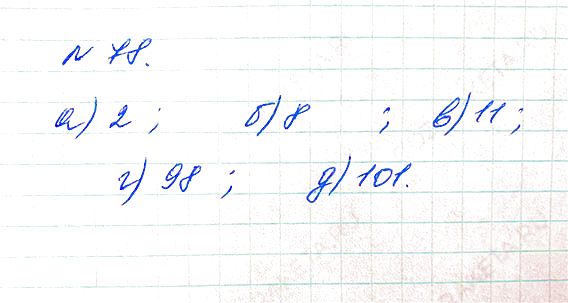 N 78.
а) 2 ; б) 8 ; в) 11 ;
г) 98 ; д) 101.